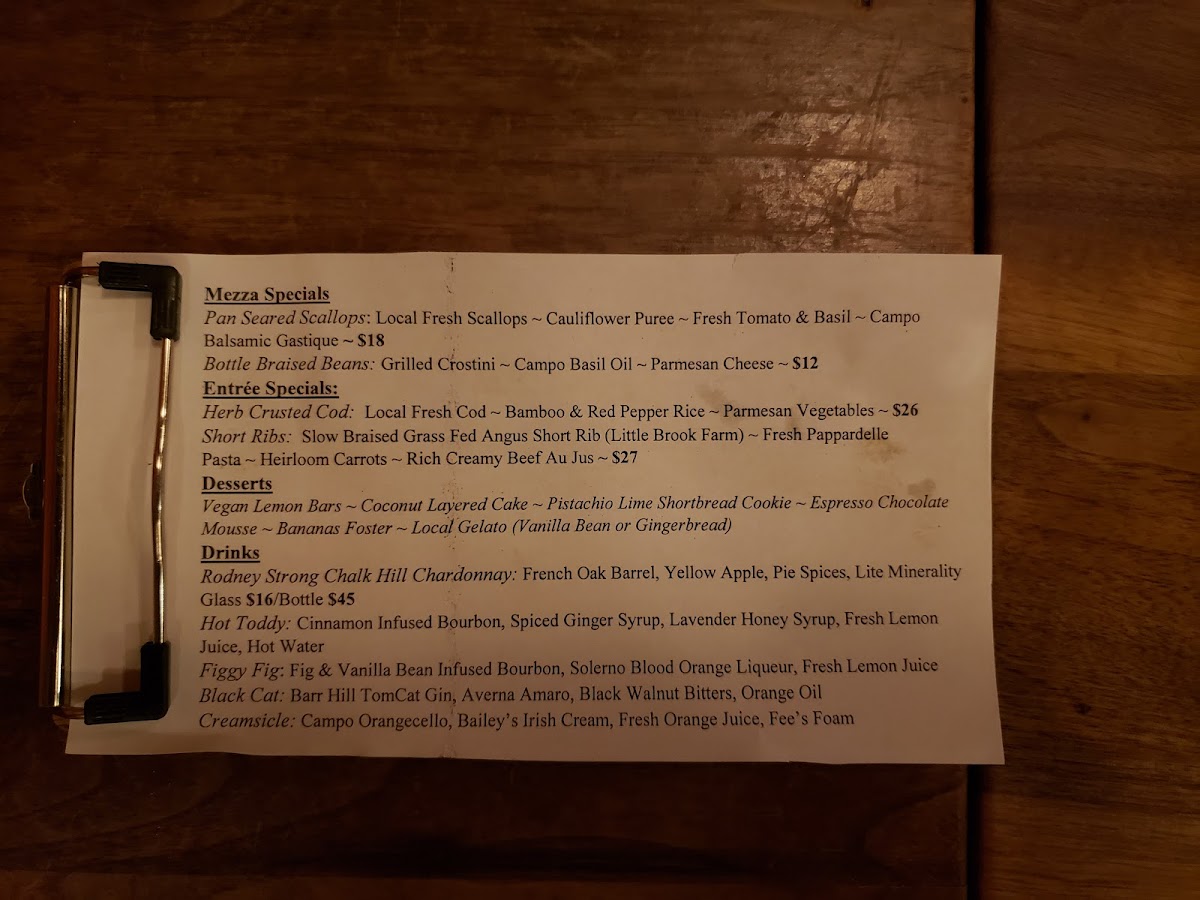 Mezza Specials
Pan Seared Scallops: Local Fresh Scallops ~ Cauliflower Puree ~ Fresh Tomato & Basil ~ Campo
Balsamic Gastique ~ $18
Bottle Braised Beans: Grilled Crostini ~ Campo Basil Oil ~ Parmesan Cheese ~ $12
Entrée Specials:
Herb Crusted Cod: Local Fresh Cod ~ Bamboo & Red Pepper Rice ~ Parmesan Vegetables ~ $26
Short Ribs: Slow Braised Grass Fed Angus Short Rib (Little Brook Farm) ~ Fresh Pappardelle
Pasta ~ Heirloom Carrots ~ Rich Creamy Beef Au Jus ~ $27
Desserts
Vegan Lemon Bars ~ Coconut Layered Cake ~ Pistachio Lime Shortbread Cookie ~ Espresso Chocolate
Mousse ~ Bananas Foster ~ Local Gelato (Vanilla Bean or Gingerbread)
Drinks
Rodney Strong Chalk Hill Chardonnay: French Oak Barrel, Yellow Apple, Pie Spices, Lite Minerality
Glass $16/Bottle $45
Hot Toddy: Cinnamon Infused Bourbon, Spiced Ginger Syrup, Lavender Honey Syrup, Fresh Lemon
Juice, Hot Water
Figgy Fig: Fig & Vanilla Bean Infused Bourbon, Solerno Blood Orange Liqueur, Fresh Lemon Juice
Black Cat: Barr Hill TomCat Gin, Averna Amaro, Black Walnut Bitters, Orange Oil
Creamsicle: Campo Orangecello, Bailey's Irish Cream, Fresh Orange Juice, Fee's Foam